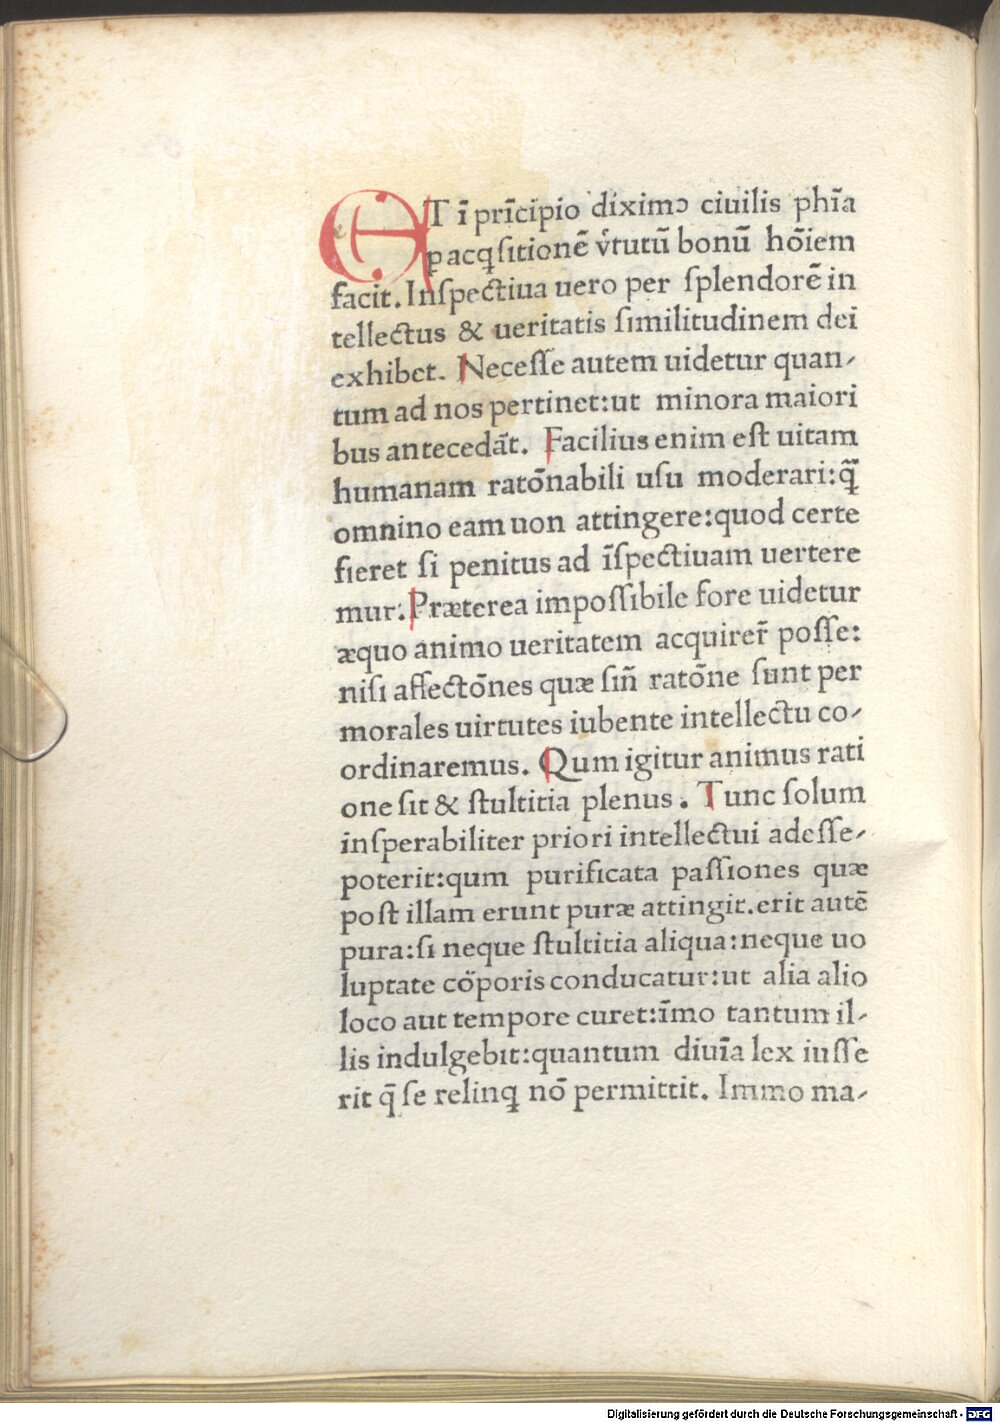 ET ī prīcipio diximꝰ ciuilis phīa
p acqsitionē v̓tutū bonū hōiem
facit. Inſpectiua uero per ſplendorē in
tellectus & ueritatis ſimilitudinem dei
exhibet. Neceſſe autem uidetur quan-
tum ad nos pertinet:ut minora maiori
bus antecedāt. Facilius enim eſt uitam
humanam ratōnabili uſu moderari:q̄̃
omnino eam uon attingere:quod certe
fieret ſi penitus ad īſpectiuam uertere
mur. Præterea impoſſibile fore uidetur
æquo animo ueritatem acquirer̄ poſſe:
niſi affectōnes quæ ſin̄ ratōne ſunt per
morales uirtutes iubente intellectu co-
ordinaremus. Qum igitur animus rati
one ſit & ſtultitia plenus. Tunc ſolum
inſperabiliter priori intellectui adeſſe-
poterit:qum purificata paſſiones quæ
poſt illam erunt puræ attingit.erit autē
pura:ſi neque ſtultitia aliqua:neque uo
luptate cōporis conducatur:ut alia alio
loco aut tempore curet:īmo tantum il-
lis indulgebit:quantum diuīa lex iuſſe
rit q̄ ſe relinꝗ nō permittit. Immo ma-
Digitalisierung gefördert durch die Deutsche Forschungsgemeinschaft - DFG